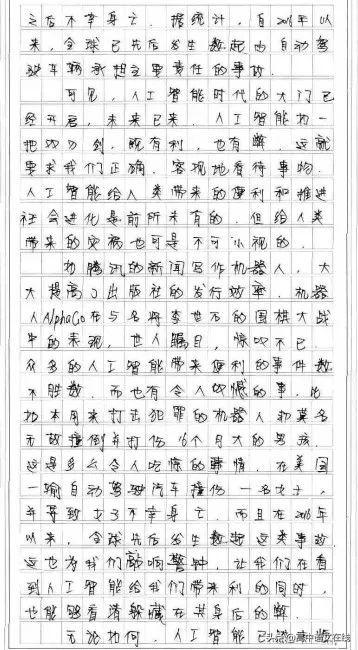 之后不幸身亡。据统计，自2016年以
来，全球已先后发生数起由自动驾
驶车辆承担主要责任的事故。
可见，人工智能时代的大门已
经开启，未来已来。人工智能如一
把双刃剑，既有利，也有弊，这就
要求我们正确、客观地看待事物。
人工智能给人类带来的便利和推进
社会进化是前所未有的，但给人类
带来的灾祸也可是不可小视的。
如腾讯的新闻写作机器人，大
大提高了出版社的发行效率。机器
人AlphaGo在与名将李世石的围棋大战
中的表现，世人瞩目，惊叹不已。
众多的人工智能带来便利的事件数
不胜数，而也有令人叹憾的事，比
如本用来打击犯罪的机器人却莫名
无故撞倒并打伤16个月大的男孩，
这是多么令人吃惊的事情，在美国
一辆自动驾驶汽车撞伤一名女士，
并导致女子不幸身亡，而且在2016年
以来，全球先后发生数起这类事故
这也为我们敲响警钟，让我们在看
到人工智能给我们带来利的同时，
也能够看清躲藏在其身后的弊。
无论如何，人工智能已
头条@高中语文在线